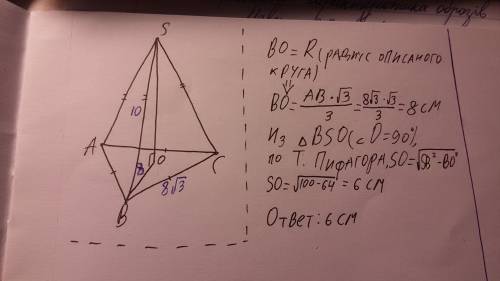 S
10
A
8
O
C
8√3
B
BO = R (радіус описаного
круга)
BO = AB·√3/3 = 8√3·√3/3 = 8 см
Из △BSO (∠O=90°),
по Т. Пифагора, SO=√SB²-BO²
SO=√100-64 = 6 см
Ответ: 6 см